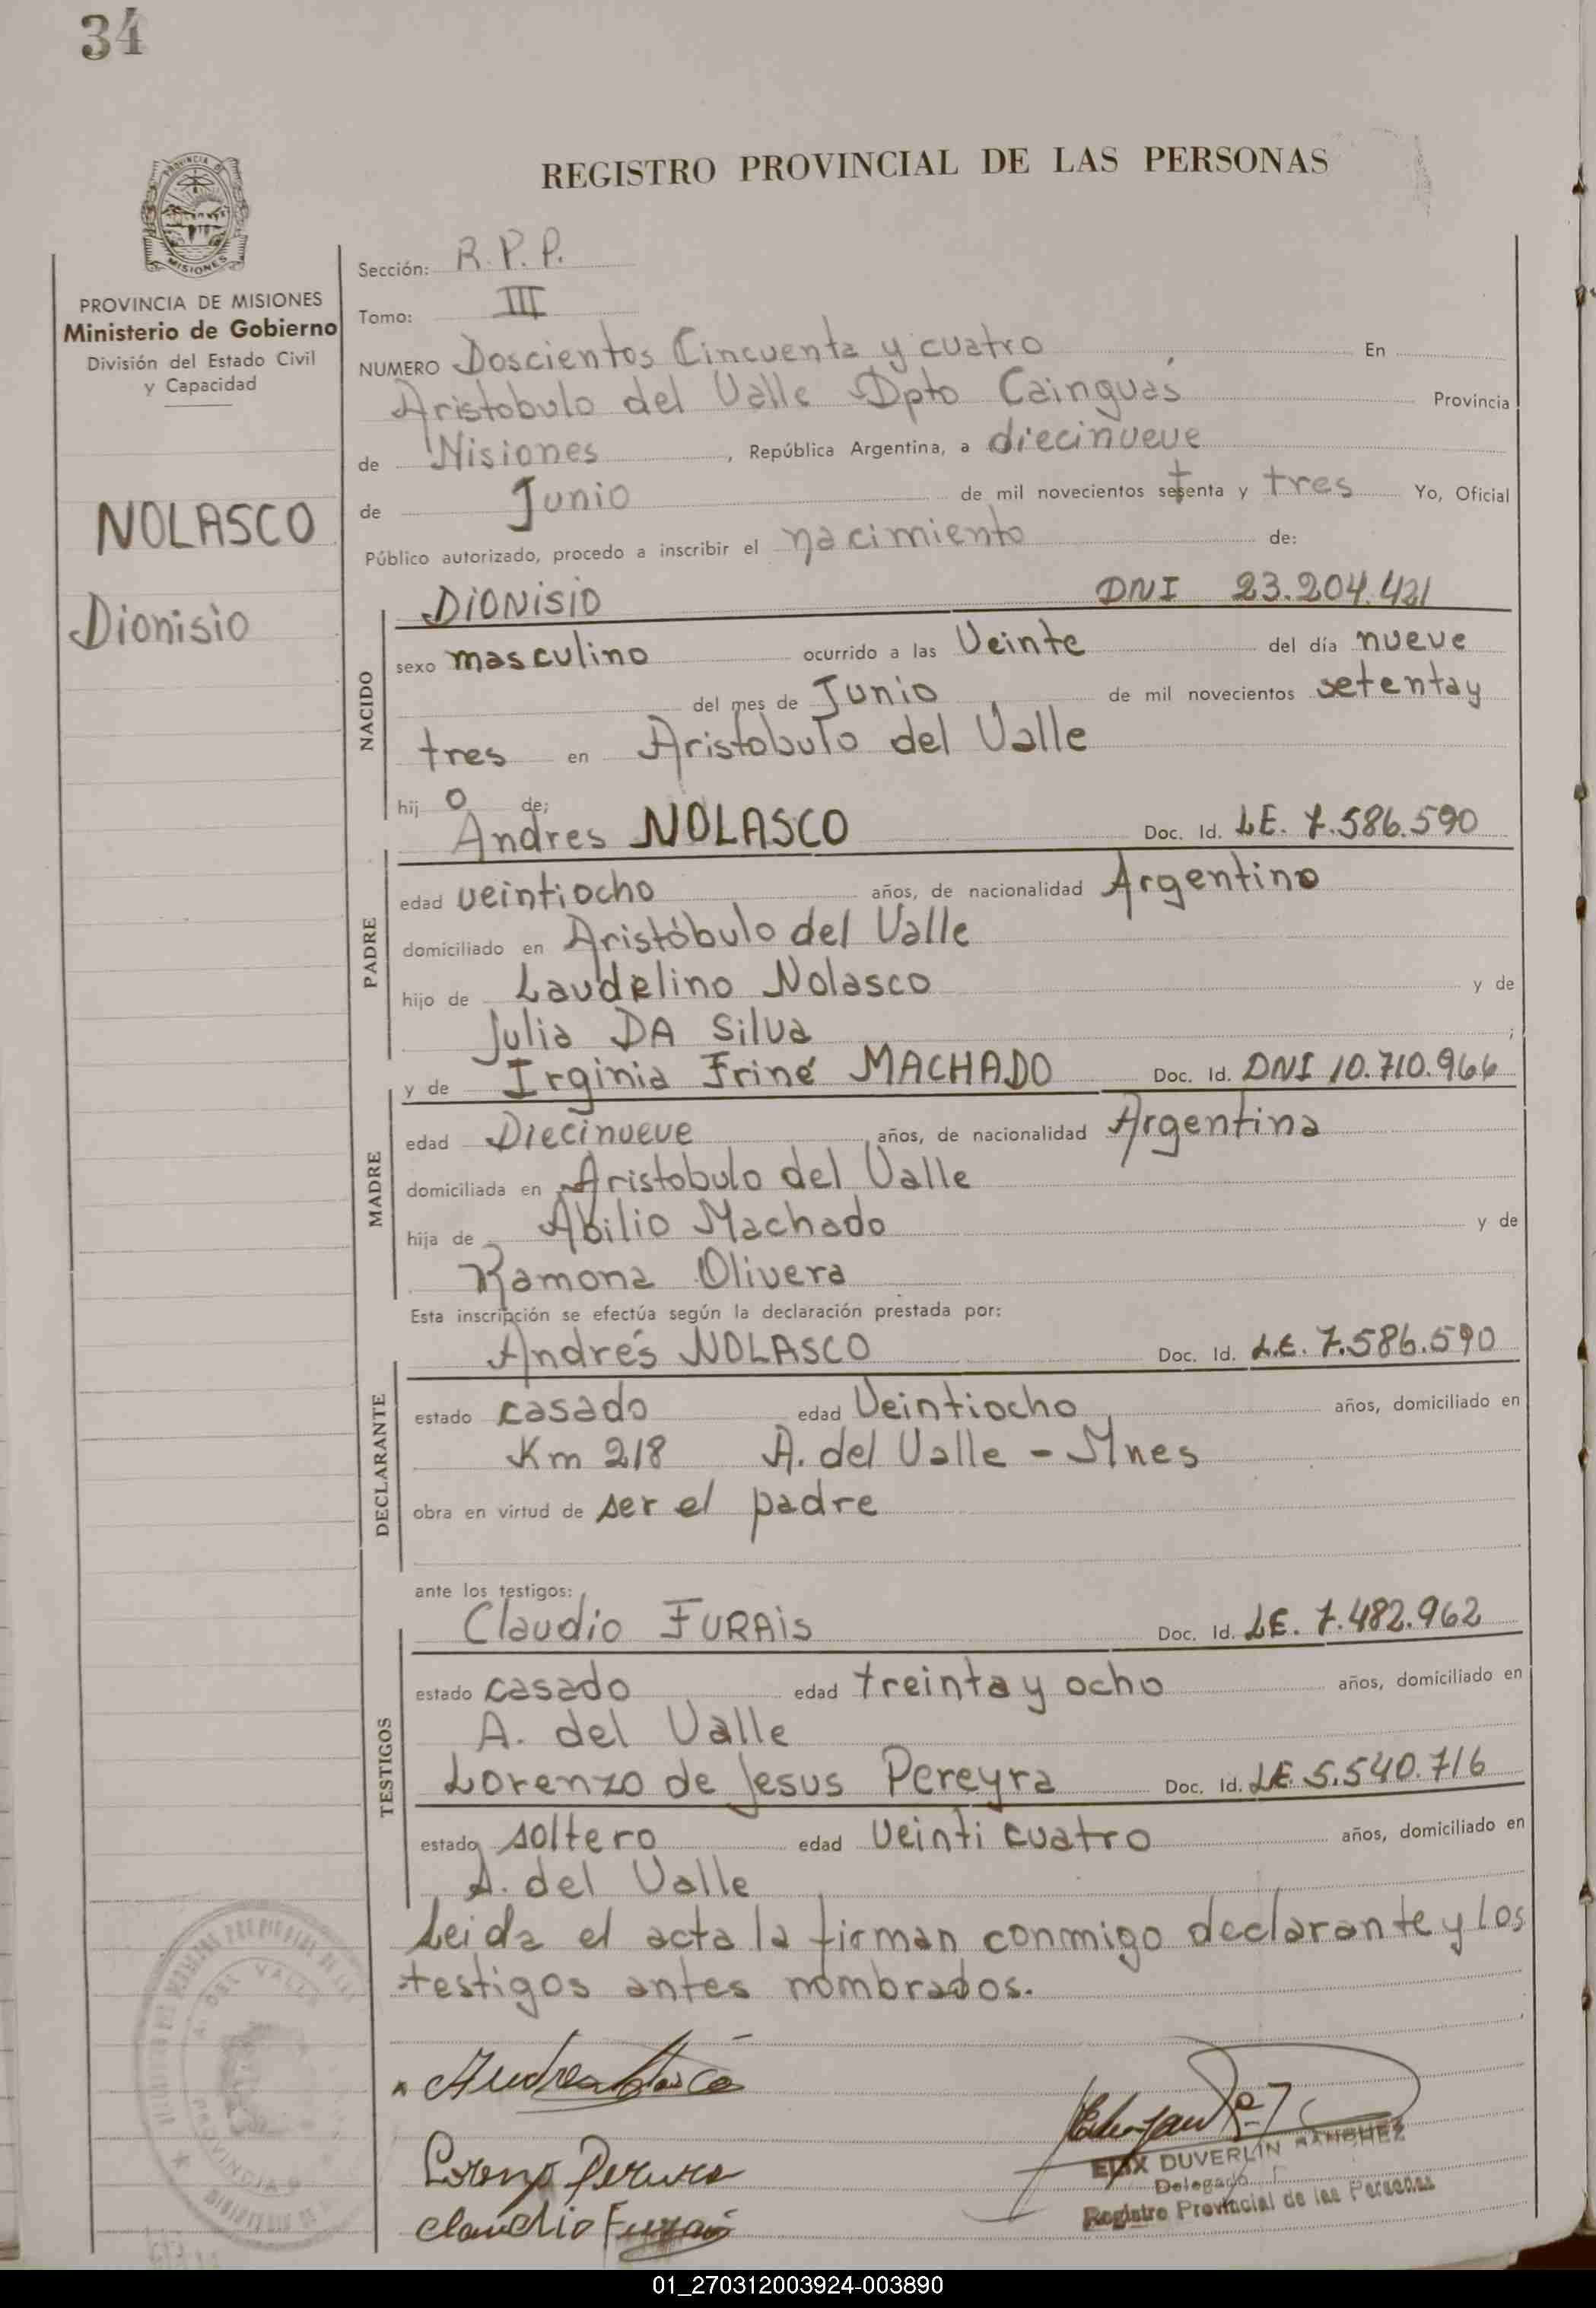 34
REGISTRO PROVINCIAL DE LAS PERSONAS
PROVINCIA
MISIONES
PROVINCIA DE MISIONES
Ministerio de Gobierno
División del Estado Civil
y Capacidad
NOLASCO
Dionisio
Sección: R.P.P.
Tomo: III
NUMERO Doscientos Cincuenta y cuatro En
Aristobulo del Valle Dpto Cainguás Provincia
de Misiones, República Argentina, a diecinueve
de Junio de mil novecientos setenta y tres Yo, Oficial
Público autorizado, procedo a inscribir el nacimiento de:
NACIDO
DIONISIO DNI 23.204.421
sexo masculino ocurrido a las Veinte del día nueve
del mes de Junio de mil novecientos setentay
tres en Aristobulo del Valle
hij o de;
PADRE
Andres NOLASCO Doc. Id. LE. 7.586.590
edad veintiocho años, de nacionalidad Argentino
domiciliado en Aristóbulo del Valle
hijo de Laudelino Nolasco y de
Julia DA Silva ;
MADRE
y de Irginia Friné MACHADO Doc. Id. DNI 10.710.966
edad Diecinueve años, de nacionalidad Argentina
domiciliada en Aristobulo del Valle
hija de Abilio Machado y de
Ramona Olivera
Esta inscripción se efectúa según la declaración prestada por:
DECLARANTE
Andrés NOLASCO Doc. Id. L.E. 7.586.590
estado casado edad Veintiocho años, domiciliado en
Km 218 A. del Valle - Mnes
obra en virtud de ser el padre
ante los testigos:
TESTIGOS
Claudio FURAIS Doc. Id. LE. 7.482.962
estado casado edad treinta y ocho años, domiciliado en
A. del Valle
Lorenzo de Jesus Pereyra Doc. Id. LE. 5.540.716
estado soltero edad Veinti cuatro años, domiciliado en
A. del Valle
Leida el acta la firman conmigo declarante y los
testigos antes nombrados.
Lorenzo Pereyra
Claudio Furais
DUVERLIN SANCHEZ
Delegado
Registro Provincial de las Personas
A. DEL VALLE
PROVINCIA
01_270312003924-003890